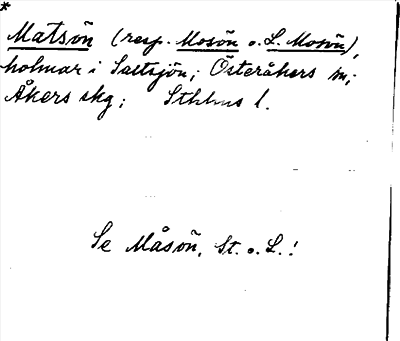 *
Matsön (resp. Mosön o. L. Mosön),
holmar i Saltsjön; Österåkers sn;
Åkers skg; Sthlms l.
Se Måsön, St. o. L.!